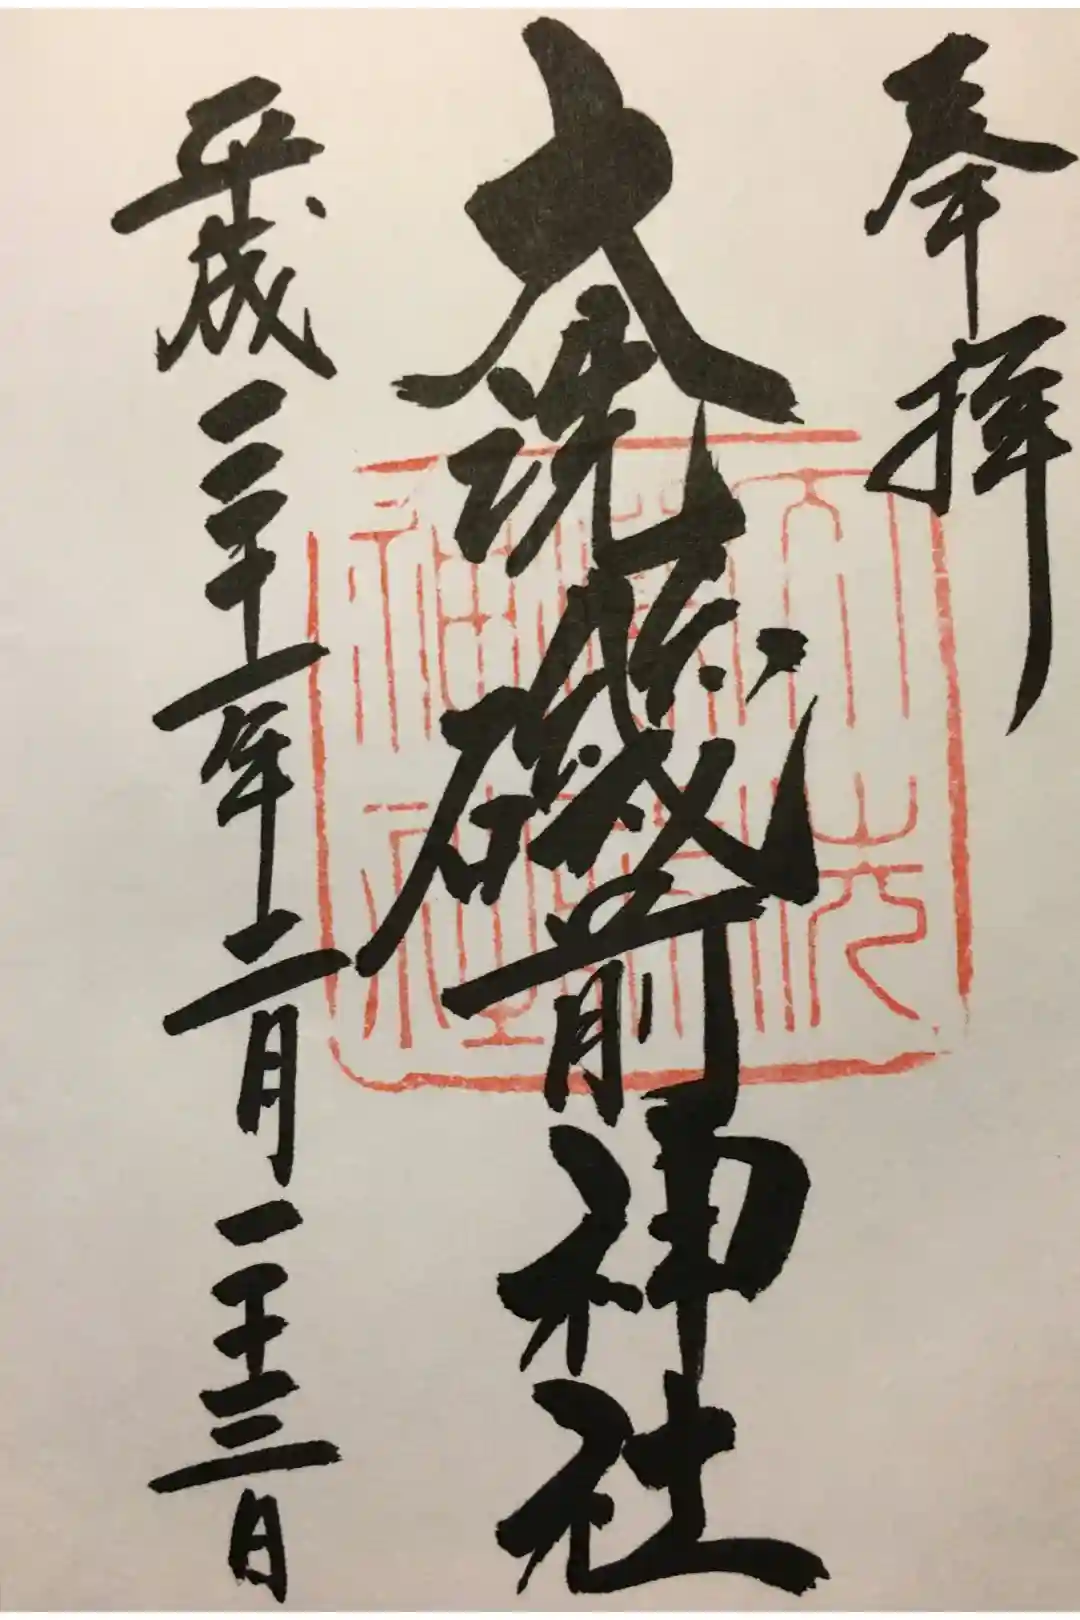 奉拝
大洗磯前神社
平成三十一年二月二十三日
大洗
磯前
神社